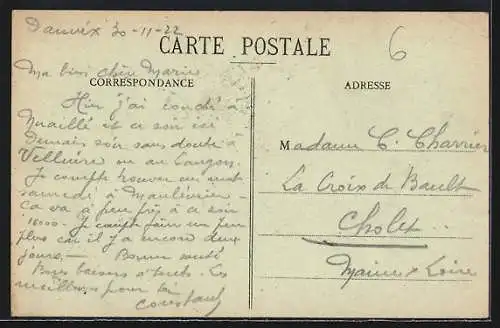 30-11-22
CARTE POSTALE
6
Ma bien chère Marie
CORRESPONDANCE
ADRESSE
Hier j'ai couché à
Nuaillé et ce soir ici
Demain soir sans doute à
Velluire ou au
Je compte trouver un mot
samedi à Maulévrier -
Ca va à peu près à ce soir
18000 - Je compte faire un peu
plus car il y a encore deux
jours. - Bonne santé
Bons baisers à toutes - Les
meilleurs pour toi
Constant
Madame C. Charrier
La Croix de Bault
Cholet
Maine & Loire